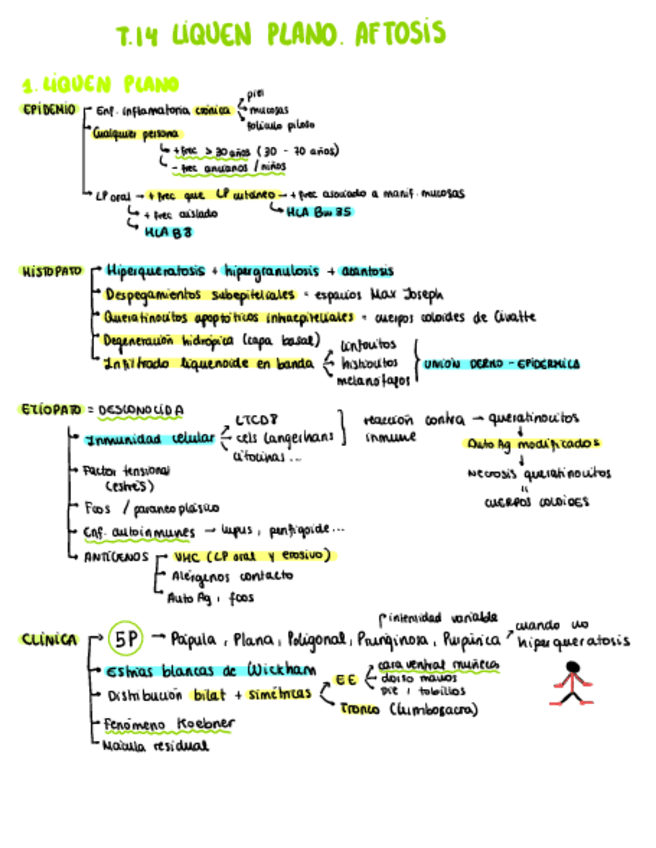 T.14 LIQUEN PLANO. AFTOSIS
1. LIQUEN PLANO
EPIDEMIO
Enf. inflamatoria crónica
piel
mucosas
folículo piloso
Cualquier persona
+ frec > 30 años (30 - 70 años)
- frec ancianos / niños
LP oral → + frec que LP cutáneo → + frec asociado a manif. mucosas
+ frec aislado
HLA Bw 35
HLA B8
HISTOPATO
Hiperqueratosis + hipergranulosis + acantosis
Despegamientos subepiteliales = espacios Max Joseph
Queratinocitos apoptóticos intraepiteliales = cuerpos coloides de Civatte
Degeneración hidrópica (capa basal)
Infiltrado liquenoide en banda
linfocitos
histiocitos
melanófagos
UNIÓN DERMO - EPIDÉRMICA
ETIOPATO = DESCONOCIDA
Inmunidad celular
LTCD8
cels Langerhans
citocinas...
reacción inmune contra → queratinocitos
Auto Ag modificados
Necrosis queratinocitos
"
CUERPOS COLOIDES
Factor tensional
(estrés)
Fcos / paraneoplásico
Enf. autoinmunes → lupus, penfigoide...
ANTÍGENOS
VHC (LP oral y erosivo)
Alérgenos contacto
Auto Ag, fcos
CLÍNICA
5P → Pápula, Plana, Poligonal, Pruriginosa, Purpúrica
intensidad variable
cuando no
hiperqueratosis
Estrías blancas de Wickham
Distribución bilat + simétricas
EE
cara ventral muñeca
dorso manos
pie, tobillos
Tronco (lumbosacra)
Fenómeno Koebner
Mácula residual